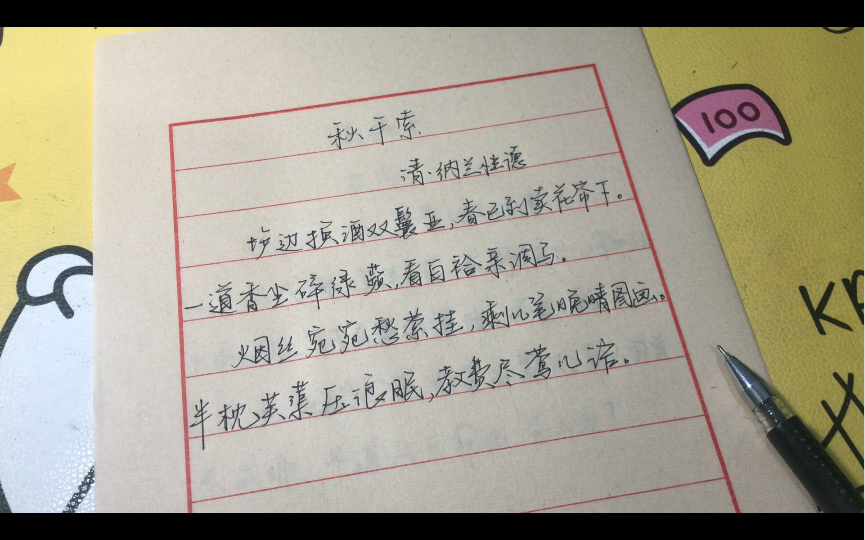 秋千索
清·纳兰性德
垆边换酒双鬟亚,春已到卖花帘下。
一道香尘碎绿蘋,看白袷亲调马。
烟丝宛宛愁萦挂,剩几笔晚晴图画。
半枕芙蕖压浪眠,教费尽莺儿话。
100